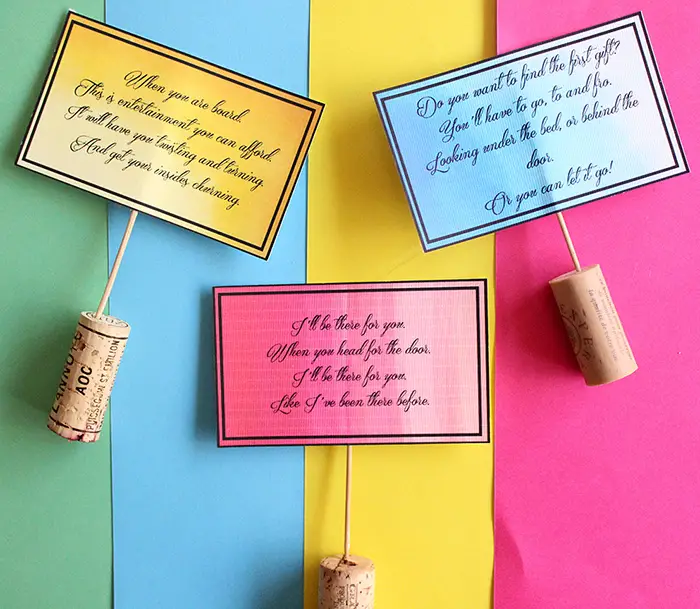 When you are board,
This is entertainment you can afford.
It will have you twisting and turning.
And get your insides churning.
Do you want to find the first gift?
You'll have to go, to and fro.
Looking under the bed, or behind the
door.
Or you can let it go!
I'll be there for you.
When you head for the door.
I'll be there for you,
Like I've been there before.
AOC